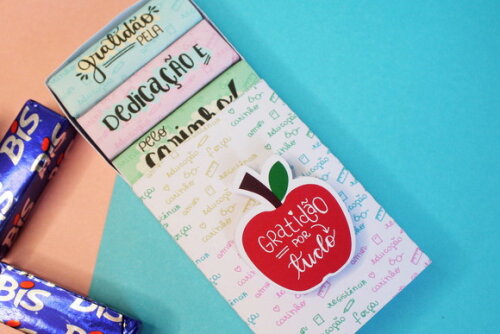 gratidão
PELA
DEDICAÇÃO E
pelo
carinho!
GRATIDÃO
POR
tudo
BIS
BIS
BIS
BIS
BIS
educação
carinho
amor
força
resistência